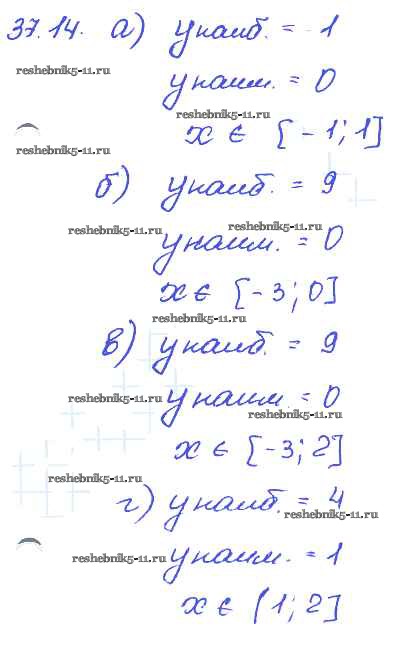 37.14. а) y наиб. = 1
reshebnik5-11.ru
y наим. = 0
reshebnik5-11.ru
x ∈ [-1; 1]
reshebnik5-11.ru
б) y наиб. = 9
reshebnik5-11.ru reshebnik5-11.ru
y наим. = 0
x ∈ [-3; 0]
reshebnik5-11.ru
в) y наиб. = 9
reshebnik5-11.ru
y наим. = 0
reshebnik5-11.ru
x ∈ [-3; 2]
reshebnik5-11.ru
г) y наиб. = 4
reshebnik5-11.ru
reshebnik5-11.ru
y наим. = 1
x ∈ [1; 2]